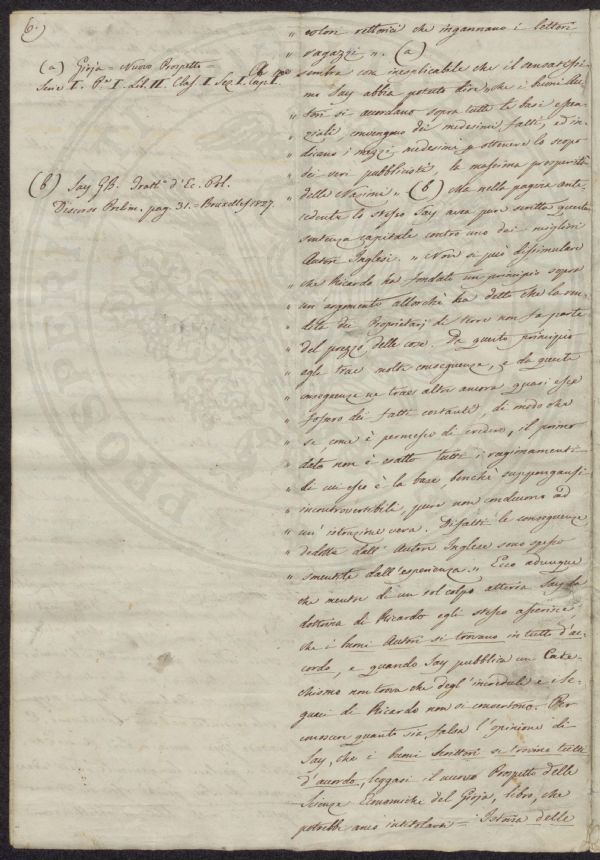 6.)
(a) Gioja = Nuovo Prospetto =
Serie I. P.e I. Lib. II. Clas. I. Sez. I. Cap. I.
(b) Say G.B. Tratt.o d'Ec. Pol.
Discorso Prelim. pag. 31. = Bruxelles 1827.
" colori rettorici che ingannano i lettori
" ragazzi ". (a)
Sembra con inesplicabile che il sensatissi-
mo Say abbia potuto dire " che i buoni Au-
" tori si accordano sopra tutte le basi essen-
" ziali convengono dei medesimi fatti, ed in-
" dicano i mezzi medesimi p ottenere lo scopo
" dei veri pubblicisti, la massima prosperità
" delle Nazioni " (b) Ma nella pagina ante-
cedente lo stesso Say avea pure scritta questa
sentenza capitale contro uno dei migliori
Autori Inglesi. " Non si può dissimulare
" che Ricardo ha fondato un principio sopra
" un argomento allorchè ha detto che la ren-
" dita dei Proprietarj di terre non fa parte
" del prezzo delle cose. Da questo principio
" egli trae molte conseguenze, e da queste
" conseguenze ne trae altre ancora quasi esse
" fossero dei fatti costanti, di modo che
" se come è permesso di credere, il primo
" dato non è esatto tutti i ragionamenti
" di cui esso è la base benchè suppongansi
" incontroversibili, pure non conducono ad
" un' istruzione vera. Difatti le conseguenze
" dedotte dall' Autore Inglese sono spesso
" smentite dall' esperienza. " Ecco adunque
che mentre di un sol colpo atterra Say la
dottrina di Ricardo egli stesso asserisce
che i buoni Autori si trovano in tutto d'ac-
cordo, e quando Say pubblica un Cate-
chismo non trova che degl' increduli e i se-
guaci di Ricardo non si convertono. Per
conoscere quanto sia falsa l'opinione di
Say, che i buoni Scrittori si trovino tutti
d'accordo, leggasi il nuovo Prospetto delle
Scienze Economiche del Gioja, libro, che
potrebbe anco intitolarsi = Istoria delle